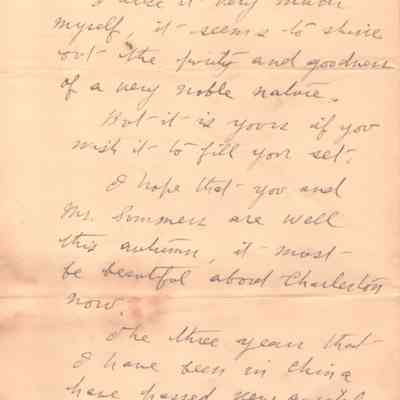 I like it very much
myself, it seems to shine
out the purity and goodness
of a very noble nature.
But it is yours if you
wish it to fill your set.
I hope that you and
Mr. Simmers are well
this autumn, it must
be beautiful about Charleston
now.
The three years that
I have been in China
have passed very